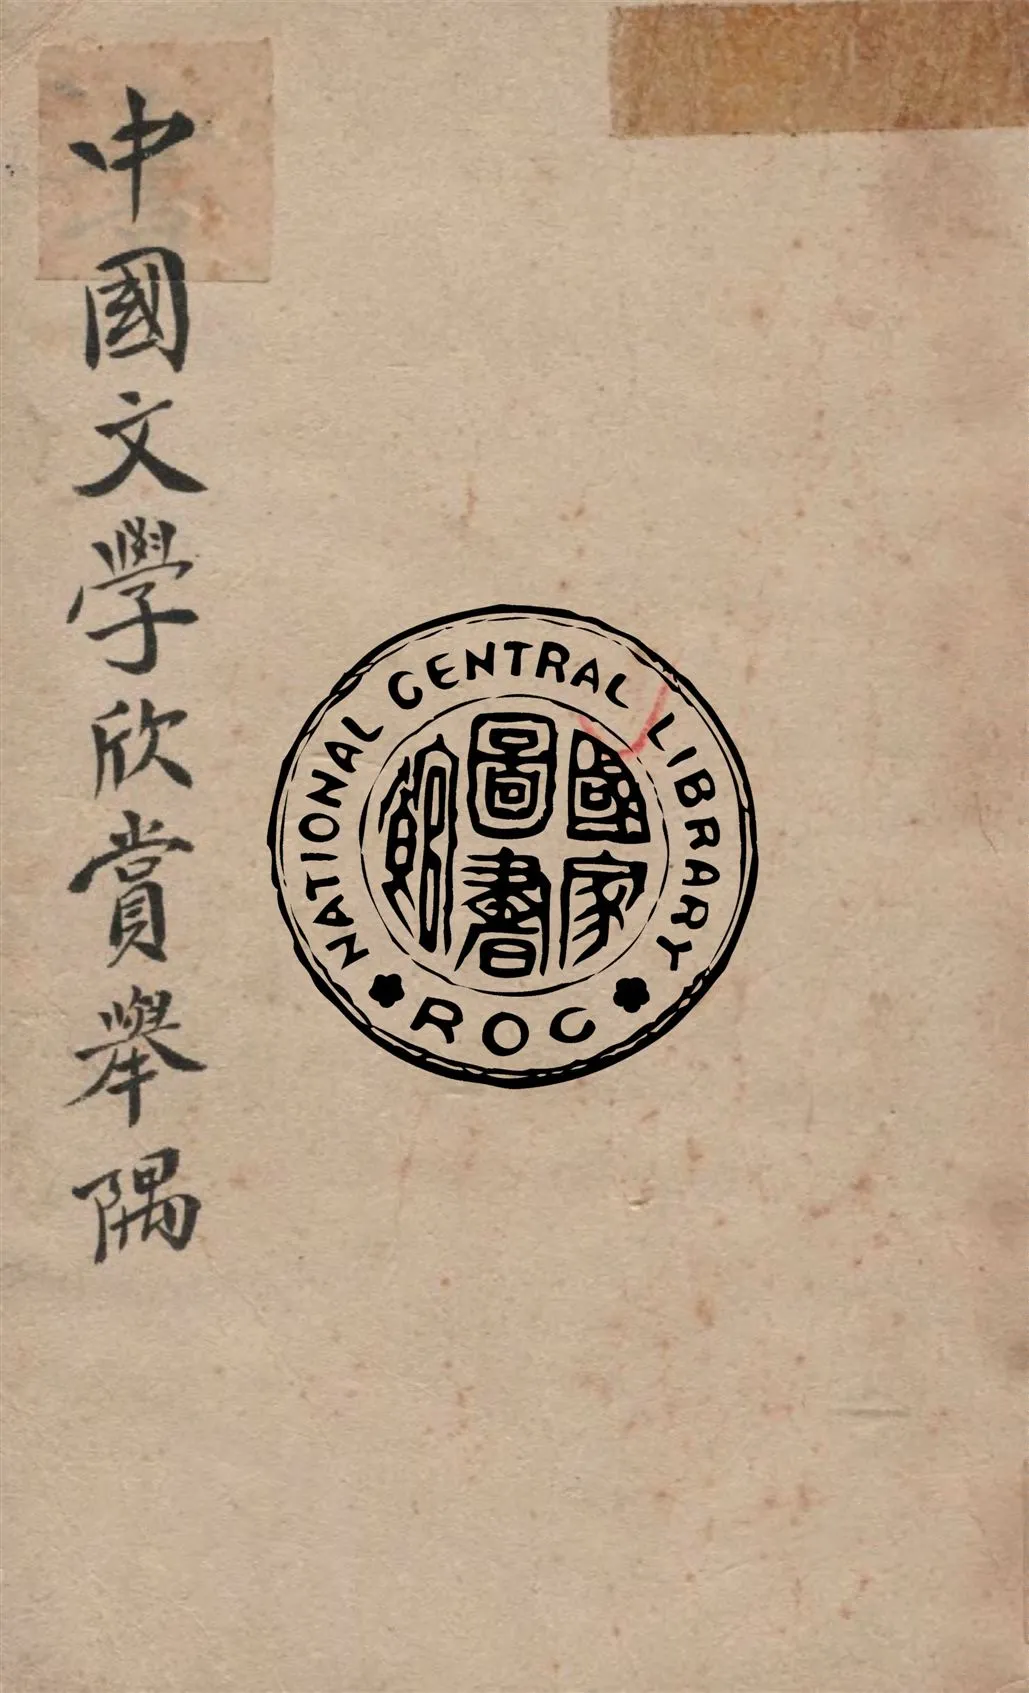 中國文學欣賞舉隅
NATIONAL CENTRAL LIBRARY
國家圖書館
ROC